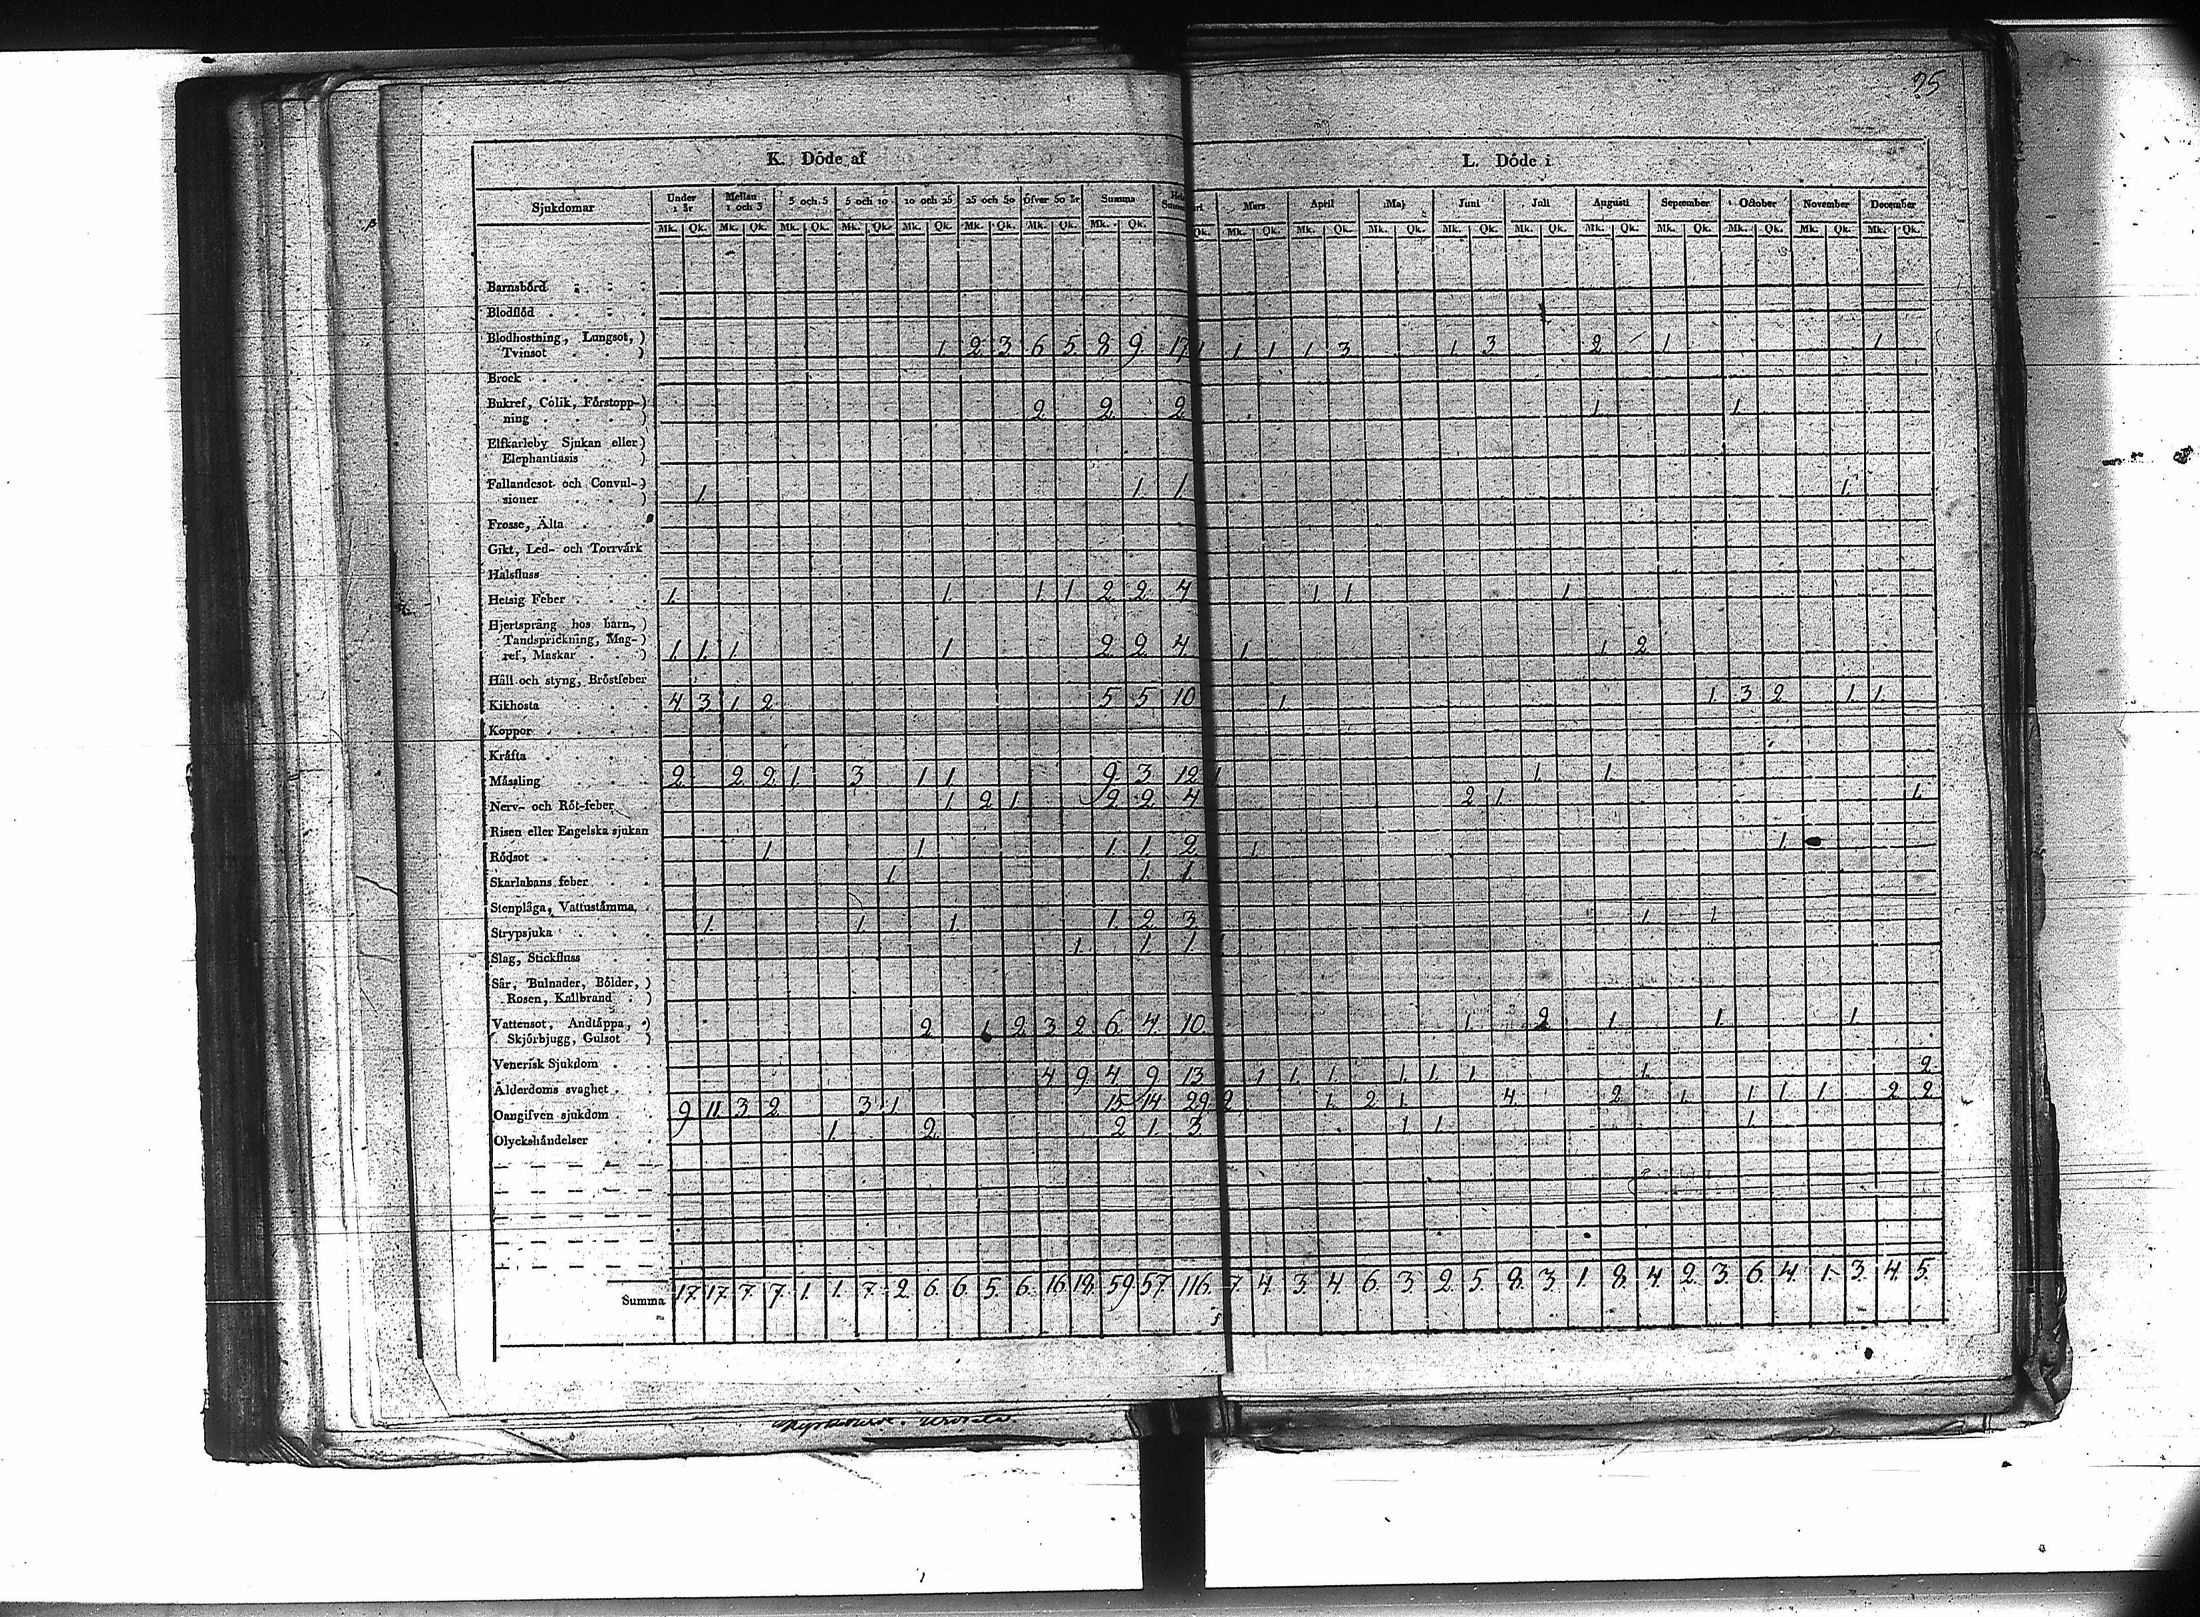 75
K. Döde af
L. Döde i
Sjukdomar Under 1 år Mellan 1 och 3 3 och 5 5 och 10 10 och 25 25 och 50 Öfver 50 år Summa Summa Mars April Maj Juni Juli Augusti September October November December
Mk. Qk. Mk. Qk. Mk. Qk. Mk. Qk. Mk. Qk. Mk. Qk. Mk. Qk. Mk. Qk. Qk. Mk. Qk. Mk. Qk. Mk. Qk. Mk. Qk. Mk. Qk. Mk. Qk. Mk. Qk. Mk. Qk. Mk. Qk. Mk. Qk.
Barnsbörd
Blodflöd
Blodhostning, Lungsot,
Tvinsot 1. 2 3 6 5. 8 9. 17 1 1 1 1 3 1 3 2 1 1
Brock
Bukref, Colik, Förstopp-
ning 2 2 2 1. 1.
Elfkarleby Sjukan eller
Elephantiasis
Fallandesot och Convul-
sioner 1 1 1 1.
Frosse, Älta
Gikt, Led- och Torrvärk
Halsfluss
Hetsig Feber 1. 1. 1. 1 2 2 4 1 1 1
Hjertsprång hos barn,
Tandsprickning, Mag-
ref, Maskar 1. 1. 1 1 2 2 4 1. 1 2
Håll och styng, Bröstfeber
Kikhosta 4 3 1 2 5 5 10 1 1. 3 2 1. 1
Koppor
Kräfta
Mässling 2 2 2 1 3 1 1 9 3 12 1 1. 1.
Nerv- och Röt-feber 1. 2 1 2 2 4 2 1 1.
Risen eller Engelska sjukan
Rödsot 1 1 1. 1. 2 1. 1.
Skarlakans feber 1. 1. 1
Stenplåga, Vattustämma
Strypsjuka 1. 1. 1. 1. 2 3 1. 1
Slag, Stickfluss 1. 1. 1 1
Sår, Bulnader, Bölder,
Rosen, Kallbrand
Vattensot, Andtäppa,
Skjörbjugg, Gulsot 2 1. 2 3 2 6. 4. 10. 1. 2 1. 1. 1.
Venerisk Sjukdom
Ålderdoms svaghet 4 9 4 9 13 1 1. 1. 1. 1. 1. 1. 2
Oangifven sjukdom 9 11 3 2 3 1 15 14 29 2 1. 2 1. 4. 2 1. 1 1 1 2 2
Olyckshändelser 1. 2 2 1. 3 1 1 1.
Summa 17. 17. 7. 7. 1. 1. 7. 2. 6. 6. 5. 6. 16. 18. 59. 57. 116. 7. 4. 3. 4. 6. 3. 2. 5. 8. 3. 1. 8. 4. 2. 3. 6. 4. 1. 3. 4. 5.